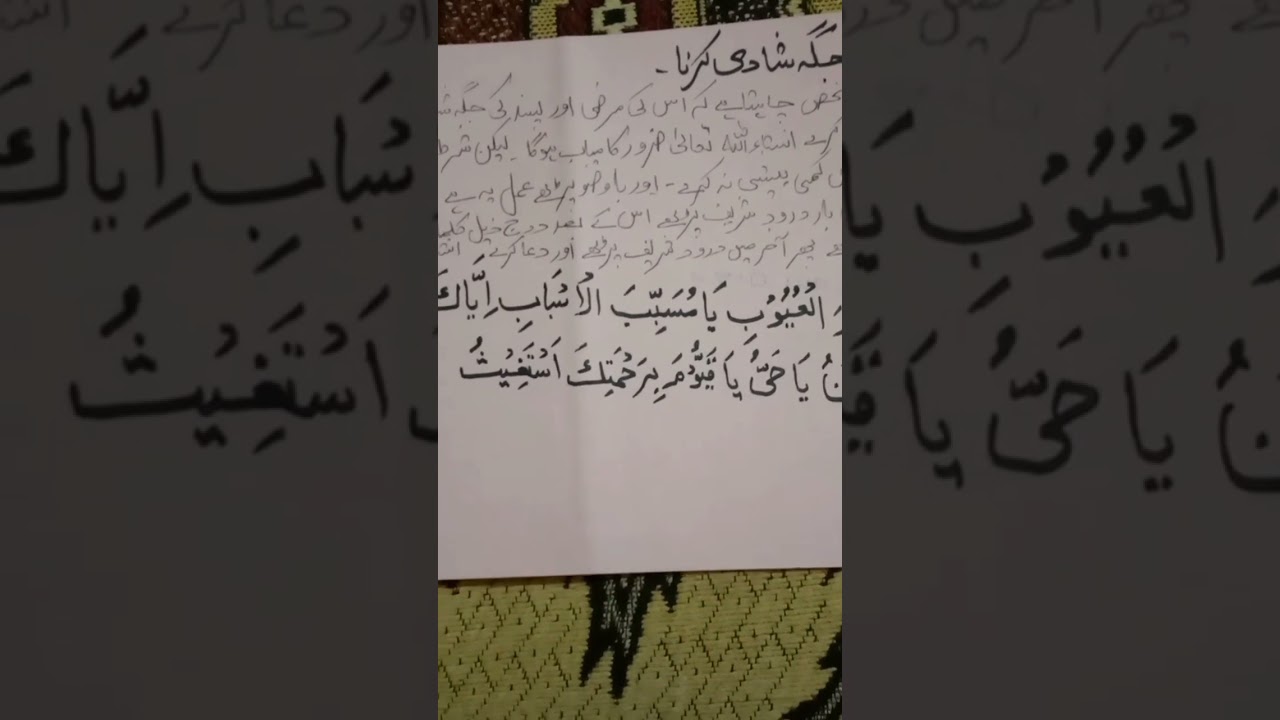 جگہ شادی کرنا۔
چاہتا ہے کہ اس کی مرضی اور پسند کی جگہ
کرے انشاء اللہ تعالیٰ ضرور کامیاب ہوگا۔ لیکن
کمی بیشی نہ کرے۔ اور باوضو پڑھے عمل یہ ہے
بار درود شریف پڑھے اس کے بعد درج ذیل
پھر آخر میں درود شریف پڑھے اور دعا کرے
الْعُيُوْبِ يَا مُسَبِّبَ الْاَسْبَابِ اِيَّاكَ
يَا حَىُّ يَا قَيُّوْمُ بِرَحْمَتِكَ اَسْتَغِيْثُ